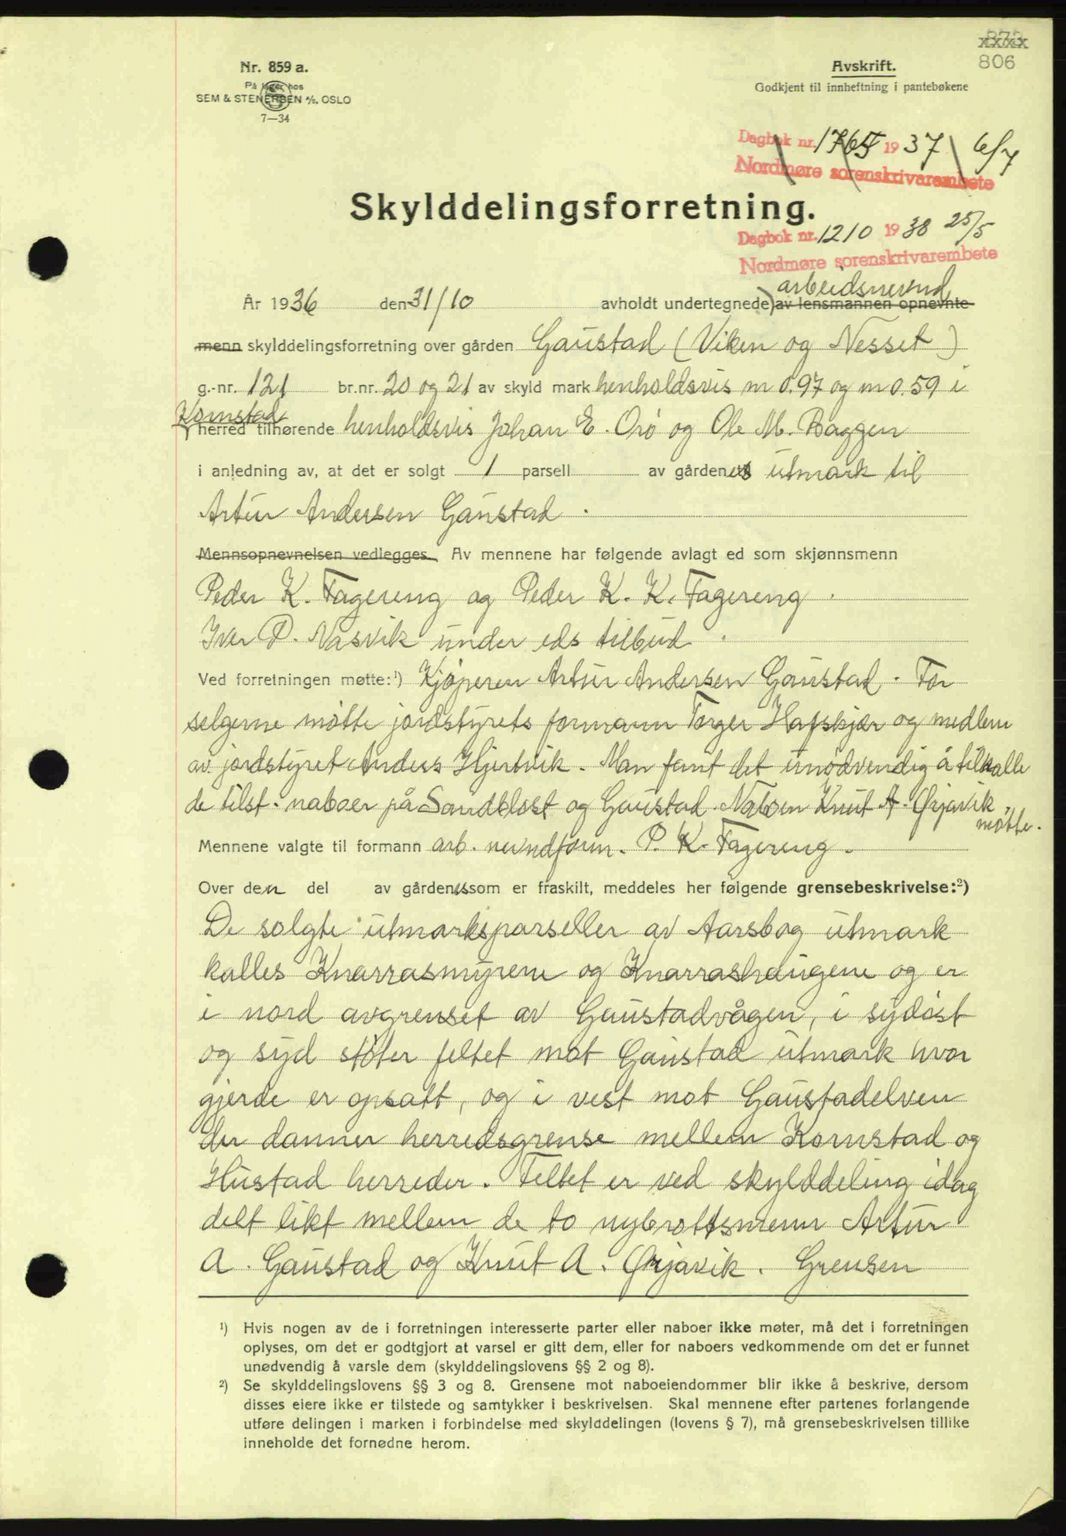 806
Nr. 859 a.
På lager hos
SEM & STENERSEN A/S, OSLO
7—34
Avskrift.
Godkjent til innheftning i pantebøkene
Dagbok nr. 1765 1937 6/7
Nordmøre sorenskrivarembete
Skylddelingsforretning.
Dagbok nr. 1210 1938 25/5
Nordmøre sorenskrivarembete
arbeidsnevnd
År 1936 den 31/10 avholdt undertegnede) av lensmannen opnevnte
menn skylddelingsforretning over gården Gaustad (Viken og Nesset)
g.-nr. 121 br.nr. 20 og 21 av skyld mark henholdsvis m 0.97 og m 0.59 i
Kornstad
herred tilhørende henholdsvis Johan E. Orö og Ole M. Baggen
i anledning av, at det er solgt 1 parsell av gårdenes utmark til
Artur Andersen Gaustad.
Mennsopnevnelsen vedlegges. Av mennene har følgende avlagt ed som skjønnsmenn
Peder K. Fagereng og Peder K. K. Fagereng.
Iver P. Nasvik under eds tilbud.
Ved forretningen møtte:¹) Kjøperen Artur Andersen Gaustad. For
selgerne møtte jordstyrets formann Torger Hafskjær og medlem
av jordstyret Anders Hjertvik. Man fant det unødvendig å tilkalle
de tilst. naboer på Sandblost og Gaustad. Naboen Knut A. Ørjavik
møtte.
Mennene valgte til formann arb. nevndform. P. K. Fagereng.
Over den del av gårdenes som er fraskilt, meddeles her følgende grensebeskrivelse:²)
De solgte utmarksparseller av Aarsbog utmark
kalles Knarrasmyrene og Knarrashaugene og er
i nord avgrenset av Gaustadvågen, i sydøst
og syd støter feltet mot Gaustad utmark hvor
gjerde er opsatt, og i vest mot Gaustadelven
der danner herredsgrense mellem Kornstad og
Hustad herreder. Feltet er ved skylddeling idag
delt likt mellem de to nybrottsmenn Artur
A. Gaustad og Knut A. Ørjavik. Grensen
¹) Hvis nogen av de i forretningen interesserte parter eller naboer ikke møter, må det i forretningen
oplyses, om det er godtgjort at varsel er gitt dem, eller for naboers vedkommende om det er funnet
unødvendig å varsle dem (skylddelingslovens §§ 2 og 8).
²) Se skylddelingslovens §§ 3 og 8. Grensene mot naboeiendommer blir ikke å beskrive, dersom
disses eiere ikke er tilstede og samtykker i beskrivelsen. Skal mennene efter partenes forlangende
utføre delingen i marken i forbindelse med skylddelingen (lovens § 7), må grensebeskrivelsen tillike
inneholde det fornødne herom.